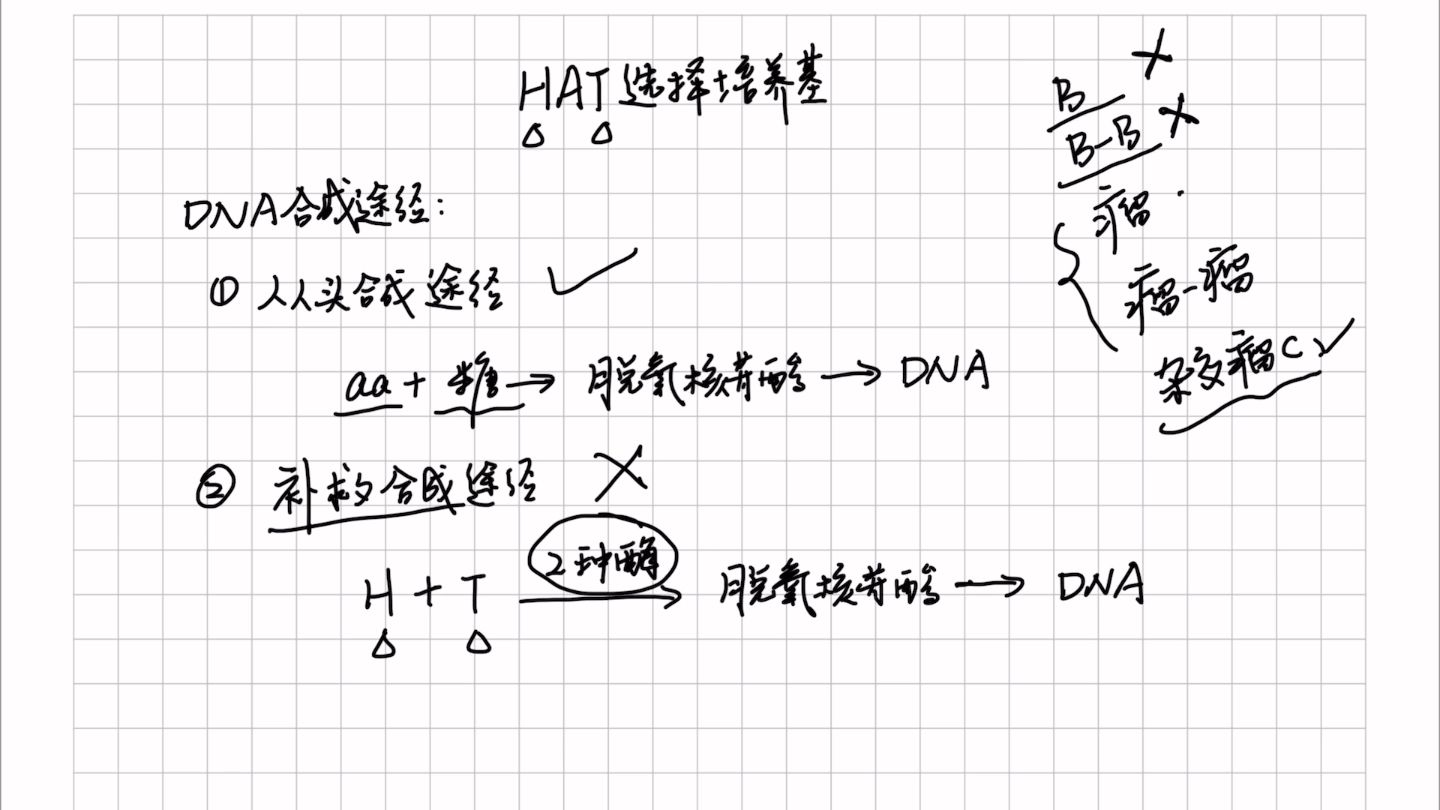 HAT选择培养基
DNA合成途径:
① 从头合成途径 ✓
aa + 糖 → 脱氧核苷酸 → DNA
② 补救合成途径 ×
H + T 2种酶 → 脱氧核苷酸 → DNA
B ×
B-B ×
瘤
瘤-瘤
杂交瘤C ✓